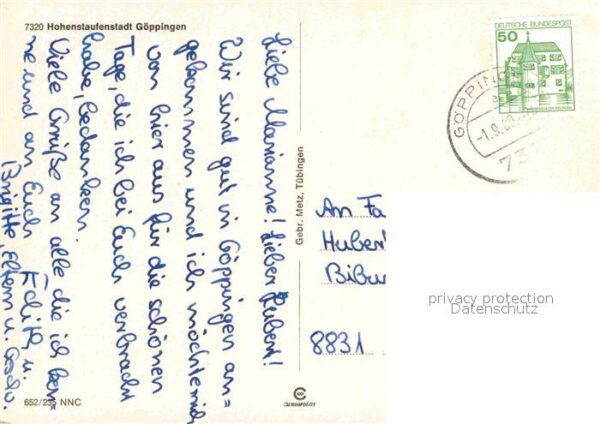 7320 Hohenstaufenstadt Göppingen
Liebe Marianne! Lieber Hubert!
Wir sind gut in Göppingen an=
gekommen und ich möchte mich
von hier aus für die schönen
Tage, die ich bei Euch verbracht
habe, bedanken.
Viele Grüße an alle die ich ken-
ne und an Euch Edith, u.
Brigitte, Eltern u. Geschw.
652/235 NNC
Gebr. Metz, Tübingen
DEUTSCHE BUNDESPOST
50
GÖPPING
-1.9.80
73
An Fa
Huber
Bibu
8831
privacy protection
Datenschutz